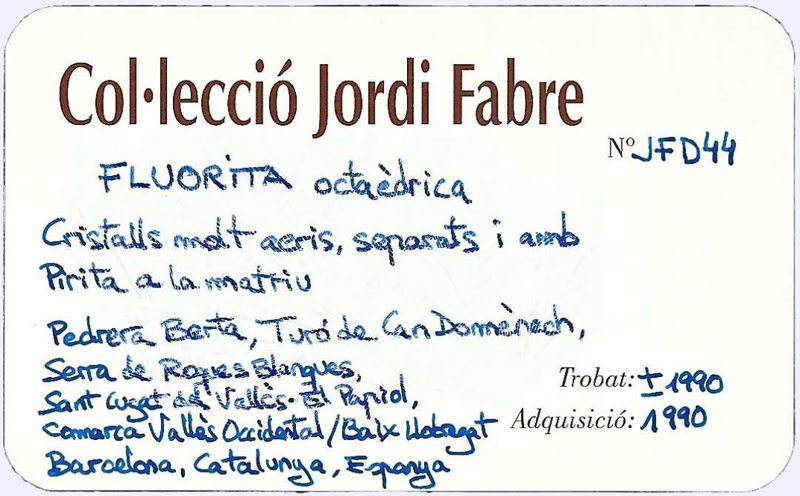 Col·lecció Jordi Fabre
Nº JFD44
FLUORITA octaèdrica
Cristalls molt aeris, separats i amb
Pirita a la matriu
Pedrera Berta, Turó de Can Domènech,
Serra de Roques Blanques,
Sant Cugat del Vallès - El Papiol,
comarca Vallès Occidental/Baix Llobregat
Barcelona, Catalunya, Espanya
Trobat: ± 1990
Adquisició: 1990